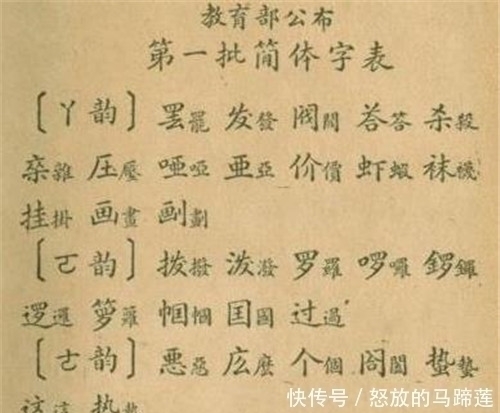 教育部公布
第一批简体字表
〔ㄚ韵〕罢罷 发發 阀閥 荅答 杀殺
杂雜 圧壓 唖啞 亜亞 价價 虾蝦 袜襪
挂掛 画畫 㓰劃
〔ㄛ韵〕拨撥 泼潑 罗羅 啰囉 锣鑼
逻邏 箩籮 帼幗 囯國 过過
〔ㄜ韵〕悪惡 庅麽 个個 阁閣 蛰蟄
这這 热熱
快传号/怒放的马蹄莲